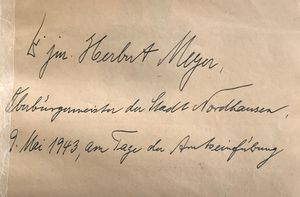 jm. Herbert Meyer,
Oberbürgermeister der Stadt Nordhausen,
9. Mai 1943, am Tage der Amtseinführung